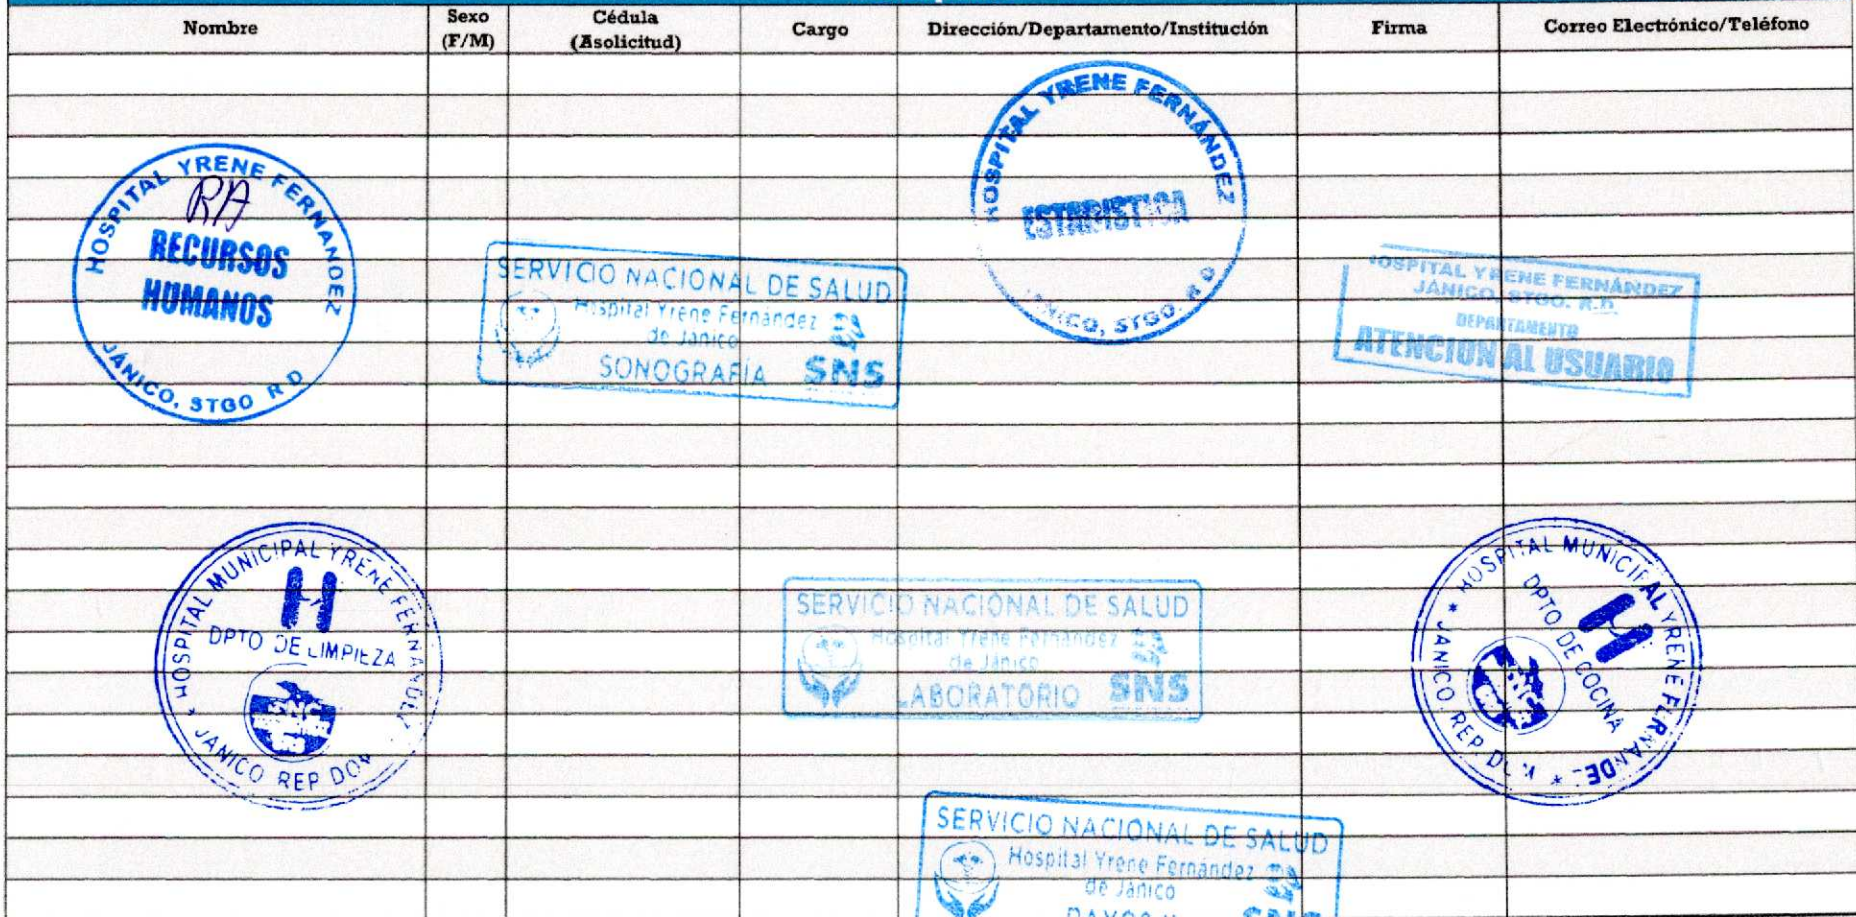 Nombre
Sexo
(F/M)
Cédula
(Asolicitud)
Cargo
Dirección/Departamento/Institución
Firma
Correo Electrónico/Teléfono
HOSPITAL YRENE FERNÁNDEZ
ESTADISTICA
JÁNICO, STGO. R D
HOSPITAL YRENE FERNANDEZ
RA
RECURSOS
HUMANOS
JÁNICO, STGO R D
SERVICIO NACIONAL DE SALUD
Hospital Yrene Fernández
de Jánico
SONOGRAFÍA
SNS
HOSPITAL YRENE FERNÁNDEZ
JÁNICO, STGO. R.D.
DEPARTAMENTO
ATENCION AL USUARIO
HOSPITAL MUNICIPAL YRENE FERNANDEZ
H
DPTO DE LIMPIEZA
* JANICO REP DOM
SERVICIO NACIONAL DE SALUD
Hospital Yrene Fernández
de Jánico
LABORATORIO
SNS
* HOSPITAL MUNICIPAL YRENE FERNANDEZ *
H
DPTO DE COCINA
JANICO REP DOM
SERVICIO NACIONAL DE SALUD
Hospital Yrene Fernández
de Jánico
RAYOS X
SNS